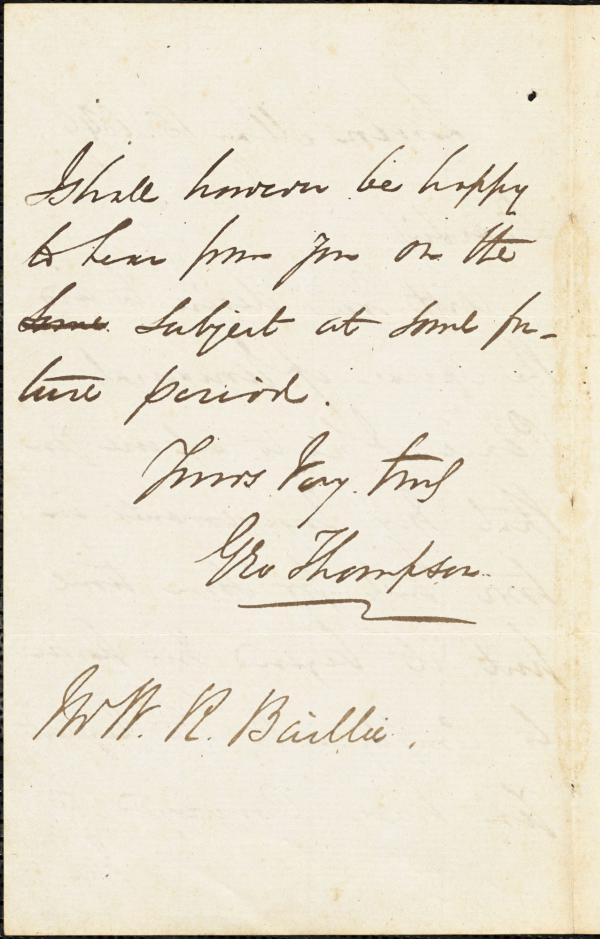 I shall however be happy
to hear from you on the
some subject at some fu-
ture period.
Yours Very truly
Geo Thompson
Mr W. R. Baillie.